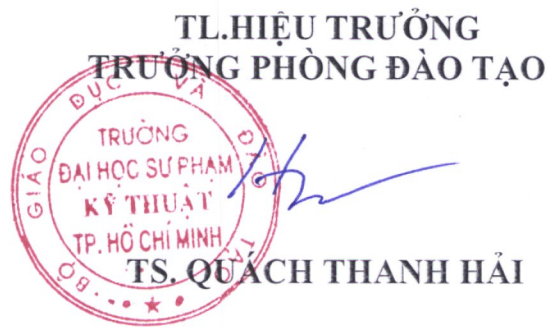 TL.HIỆU TRƯỞNG
TRƯỞNG PHÒNG ĐÀO TẠO
BỘ GIÁO DỤC VÀ ĐÀO TẠO
TRƯỜNG
ĐẠI HỌC SƯ PHẠM
KỸ THUẬT
TP. HỒ CHÍ MINH
TS. QUÁCH THANH HẢI